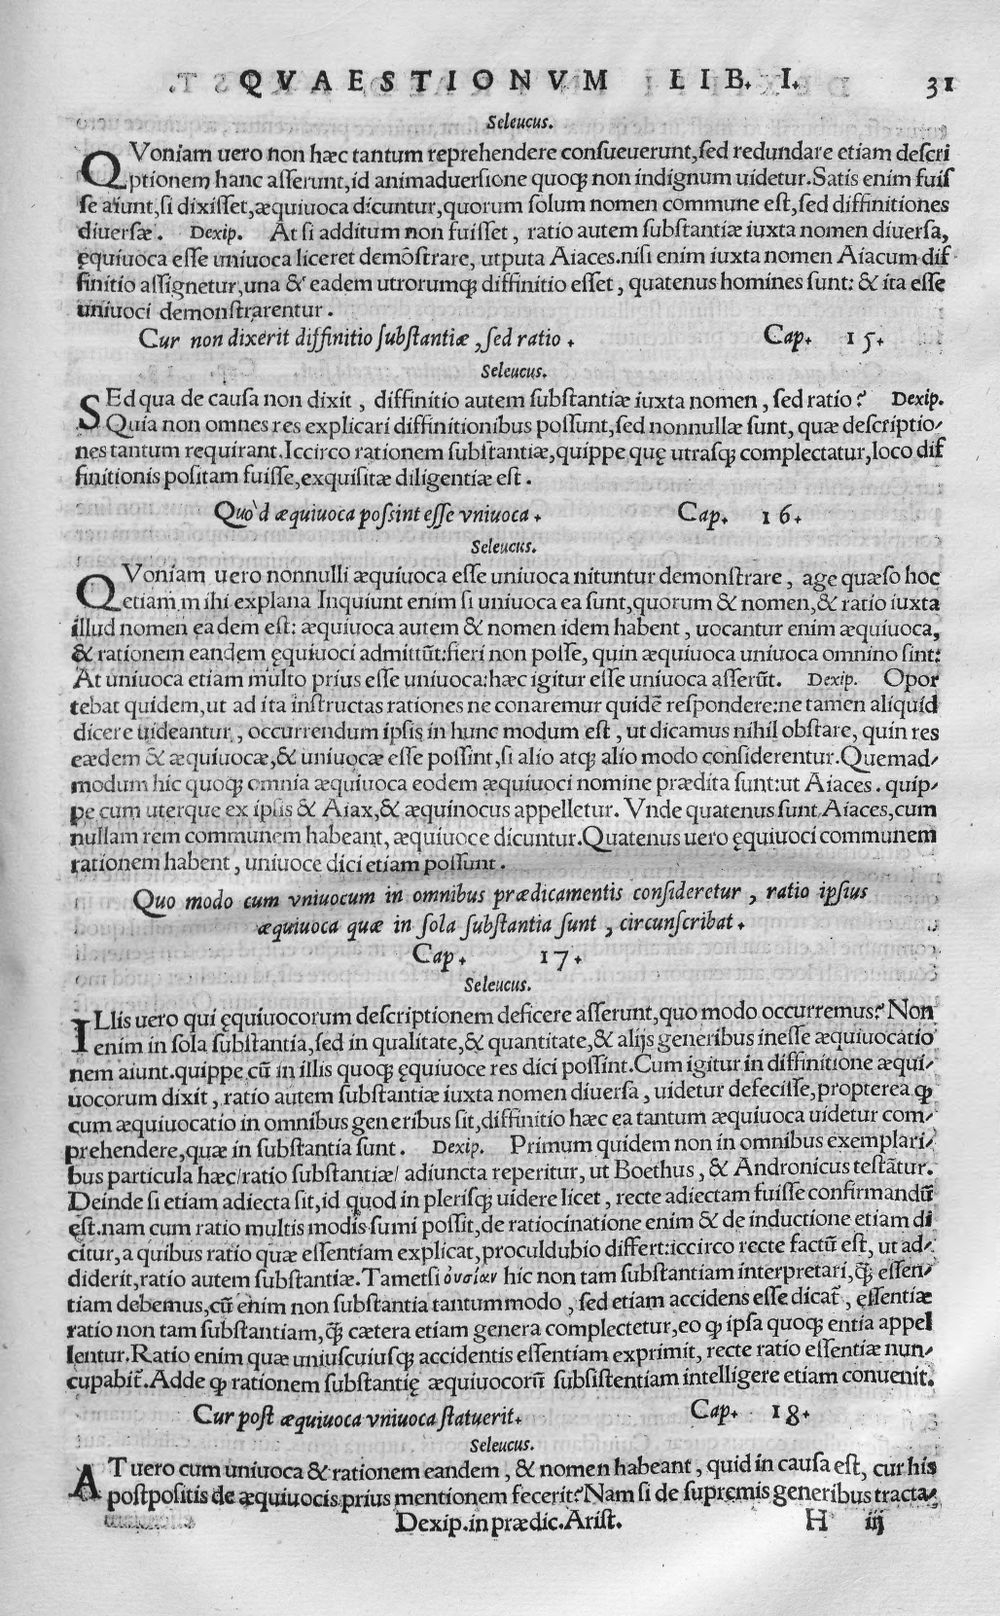 QVAESTIONVM LIB. I. 31
Seleucus.
QVoniam uero non hæc tantum reprehendere consueuerunt, sed redundare etiam descri
ptionem hanc asserunt, id animaduersione quoqꝫ non indignum uidetur. Satis enim fuis
se aiunt, si dixisset, æquiuoca dicuntur, quorum solum nomen commune est, sed diffinitiones
diuersæ. Dexip. At si additum non fuisset, ratio autem substantiæ iuxta nomen diuersa,
ęquiuoca esse uniuoca liceret demōstrare, utputa Aiaces. nisi enim iuxta nomen Aiacum dif
finitio assignetur, una & eadem utrorumqꝫ diffinitio esset, quatenus homines sunt: & ita esse
uniuoci demonstrarentur.
Cur non dixerit diffinitio substantiæ, sed ratio. Cap. 15.
Seleucus.
SEd qua de causa non dixit, diffinitio autem substantiæ iuxta nomen, sed ratio? Dexip.
Quia non omnes res explicari diffinitionibus possunt, sed nonnullæ sunt, quæ descriptio-
nes tantum requirant. Iccirco rationem substantiæ, quippe quę utrasqꝫ complectatur, loco dif
finitionis positam fuisse, exquisitæ diligentiæ est.
Quòd æquiuoca possint esse vniuoca. Cap. 16.
Seleucus.
QVoniam uero nonnulli æquiuoca esse uniuoca nituntur demonstrare, age quæso hoc
etiam mihi explana Inquiunt enim si uniuoca ea sunt, quorum & nomen, & ratio iuxta
illud nomen eadem est: æquiuoca autem & nomen idem habent, uocantur enim æquiuoca,
& rationem eandem ęquiuoci admittūt: fieri non posse, quin æquiuoca uniuoca omnino sint:
At uniuoca etiam multo prius esse uniuoca: hæc igitur esse uniuoca asserūt. Dexip. Opor
tebat quidem, ut ad ita instructas rationes ne conaremur quidē respondere: ne tamen aliquid
dicere uideantur, occurrendum ipsis in hunc modum est, ut dicamus nihil obstare, quin res
eædem & æquiuocæ, & uniuocæ esse possint, si alio atqꝫ alio modo considerentur. Quemad-
modum hic quoqꝫ omnia æquiuoca eodem æquiuoci nomine prædita sunt: ut Aiaces. quip-
pe cum uterque ex ipsis & Aiax, & æquinocus appelletur. Vnde quatenus sunt Aiaces, cum
nullam rem communem habeant, æquiuoce dicuntur. Quatenus uero ęquiuoci communem
rationem habent, uniuoce dici etiam possunt.
Quo modo cum vniuocum in omnibus prædicamentis consideretur, ratio ipsius
æquiuoca quæ in sola substantia sunt, circunscribat.
Cap. 17.
Seleucus.
ILlis uero qui ęquiuocorum descriptionem deficere asserunt, quo modo occurremus? Non
enim in sola substantia, sed in qualitate, & quantitate, & alijs generibus inesse æquiuocatio
nem aiunt. quippe cū in illis quoqꝫ ęquiuoce res dici possint. Cum igitur in diffinitione æqui-
uocorum dixit, ratio autem substantiæ iuxta nomen diuersa, uidetur defecisse, propterea ꝙ
cum æquiuocatio in omnibus generibus sit, diffinitio hæc ea tantum æquiuoca uidetur com-
prehendere, quæ in substantia sunt. Dexip. Primum quidem non in omnibus exemplari-
bus particula hæc/ratio substantiæ/ adiuncta reperitur, ut Boethus, & Andronicus testātur.
Deinde si etiam adiecta sit, id quod in plerisqꝫ uidere licet, recte adiectam fuisse confirmandū
est. nam cum ratio multis modis sumi possit, de ratiocinatione enim & de inductione etiam di
citur, a quibus ratio quæ essentiam explicat, proculdubio differt: iccirco recte factū est, ut ad-
diderit, ratio autem substantiæ. Tametsi οὐσίαν hic non tam substantiam interpretari, q̄ꝫ essen-
tiam debemus, cū enim non substantia tantummodo, sed etiam accidens esse dicat̄, essentiæ
ratio non tam substantiam, q̄ꝫ cætera etiam genera complectetur, eo ꝙ ipsa quoqꝫ entia appel
lentur. Ratio enim quæ uniuscuiusqꝫ accidentis essentiam exprimit, recte ratio essentiæ nun-
cupabit̄. Adde ꝙ rationem substantię æquiuocorū subsistentiam intelligere etiam conuenit.
Cur post æquiuoca vniuoca statuerit. Cap. 18.
Seleucus.
AT uero cum uniuoca & rationem eandem, & nomen habeant, quid in causa est, cur his
postpositis de æquiuocis prius mentionem fecerit? Nam si de supremis generibus tracta-
Dexip. in prædic. Arist. H iij